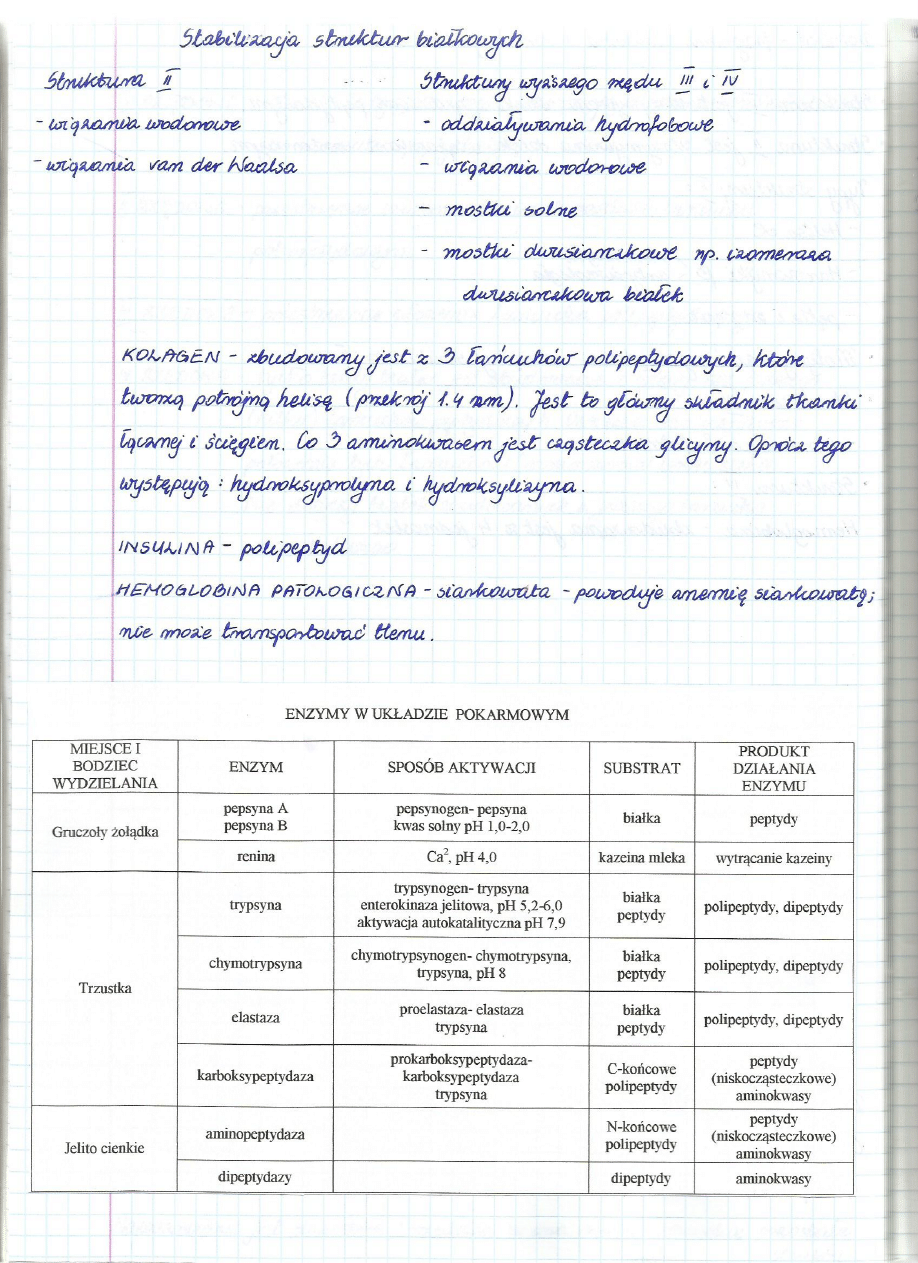 Stabilizacja struktur białkowych
Struktura II
- wiązania wodorowe
- wiązania van der Waalsa
Struktury wyższego rzędu III i IV
- oddziaływania hydrofobowe
- wiązania wodorowe
- mostki solne
- mostki dwusiarczkowe np. izomeraza
dwusiarczkowa białek
KOLAGEN - zbudowany jest z 3 łańcuchów polipeptydowych, które
tworzą potrójną helisę (przekrój 1.4 nm). Jest to główny składnik tkanki
łącznej i ścięgien. Co 3 aminokwasem jest cząsteczka glicyny. Oprócz tego
występują : hydroksyprolyna i hydroksylizyna.
INSULINA - polipeptyd
HEMOGLOBINA PATOLOGICZNA - siarkowata - powoduje anemię siarkowatą;
nie może transportować tlenu.
ENZYMY W UKŁADZIE POKARMOWYM
MIEJSCE I BODZIEC WYDZIELANIA | ENZYM | SPOSÓB AKTYWACJI | SUBSTRAT | PRODUKT DZIAŁANIA ENZYMU
Gruczoły żołądka | pepsyna A pepsyna B | pepsynogen- pepsyna kwas solny pH 1,0-2,0 | białka | peptydy
renina | Ca², pH 4,0 | kazeina mleka | wytrącanie kazeiny
Trzustka | trypsyna | trypsynogen- trypsyna enterokinaza jelitowa, pH 5,2-6,0 aktywacja autokatalityczna pH 7,9 | białka peptydy | polipeptydy, dipeptydy
chymotrypsyna | chymotrypsynogen- chymotrypsyna, trypsyna, pH 8 | białka peptydy | polipeptydy, dipeptydy
elastaza | proelastaza- elastaza trypsyna | białka peptydy | polipeptydy, dipeptydy
karboksypeptydaza | prokarboksypeptydaza- karboksypeptydaza trypsyna | C-końcowe polipeptydy | peptydy (niskocząsteczkowe) aminokwasy
Jelito cienkie | aminopeptydaza | N-końcowe polipeptydy | peptydy (niskocząsteczkowe) aminokwasy
dipeptydazy | dipeptydy | aminokwasy